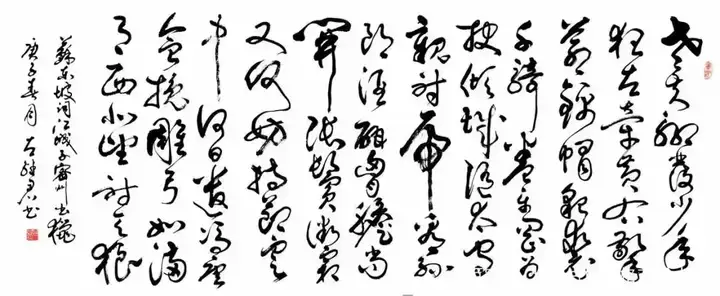 老夫聊發少年
狂左牽黃右擎
蒼錦帽貂裘
千騎卷平岡為
报傾城隨太守
親射虎看孫
郎酒酣胸膽尚
開張鬢微霜
又何妨持節雲
中何日遣馮唐
會挽雕弓如滿
月西北望射天狼
蘇东坡词江城子密州出獵
庚子春月 书